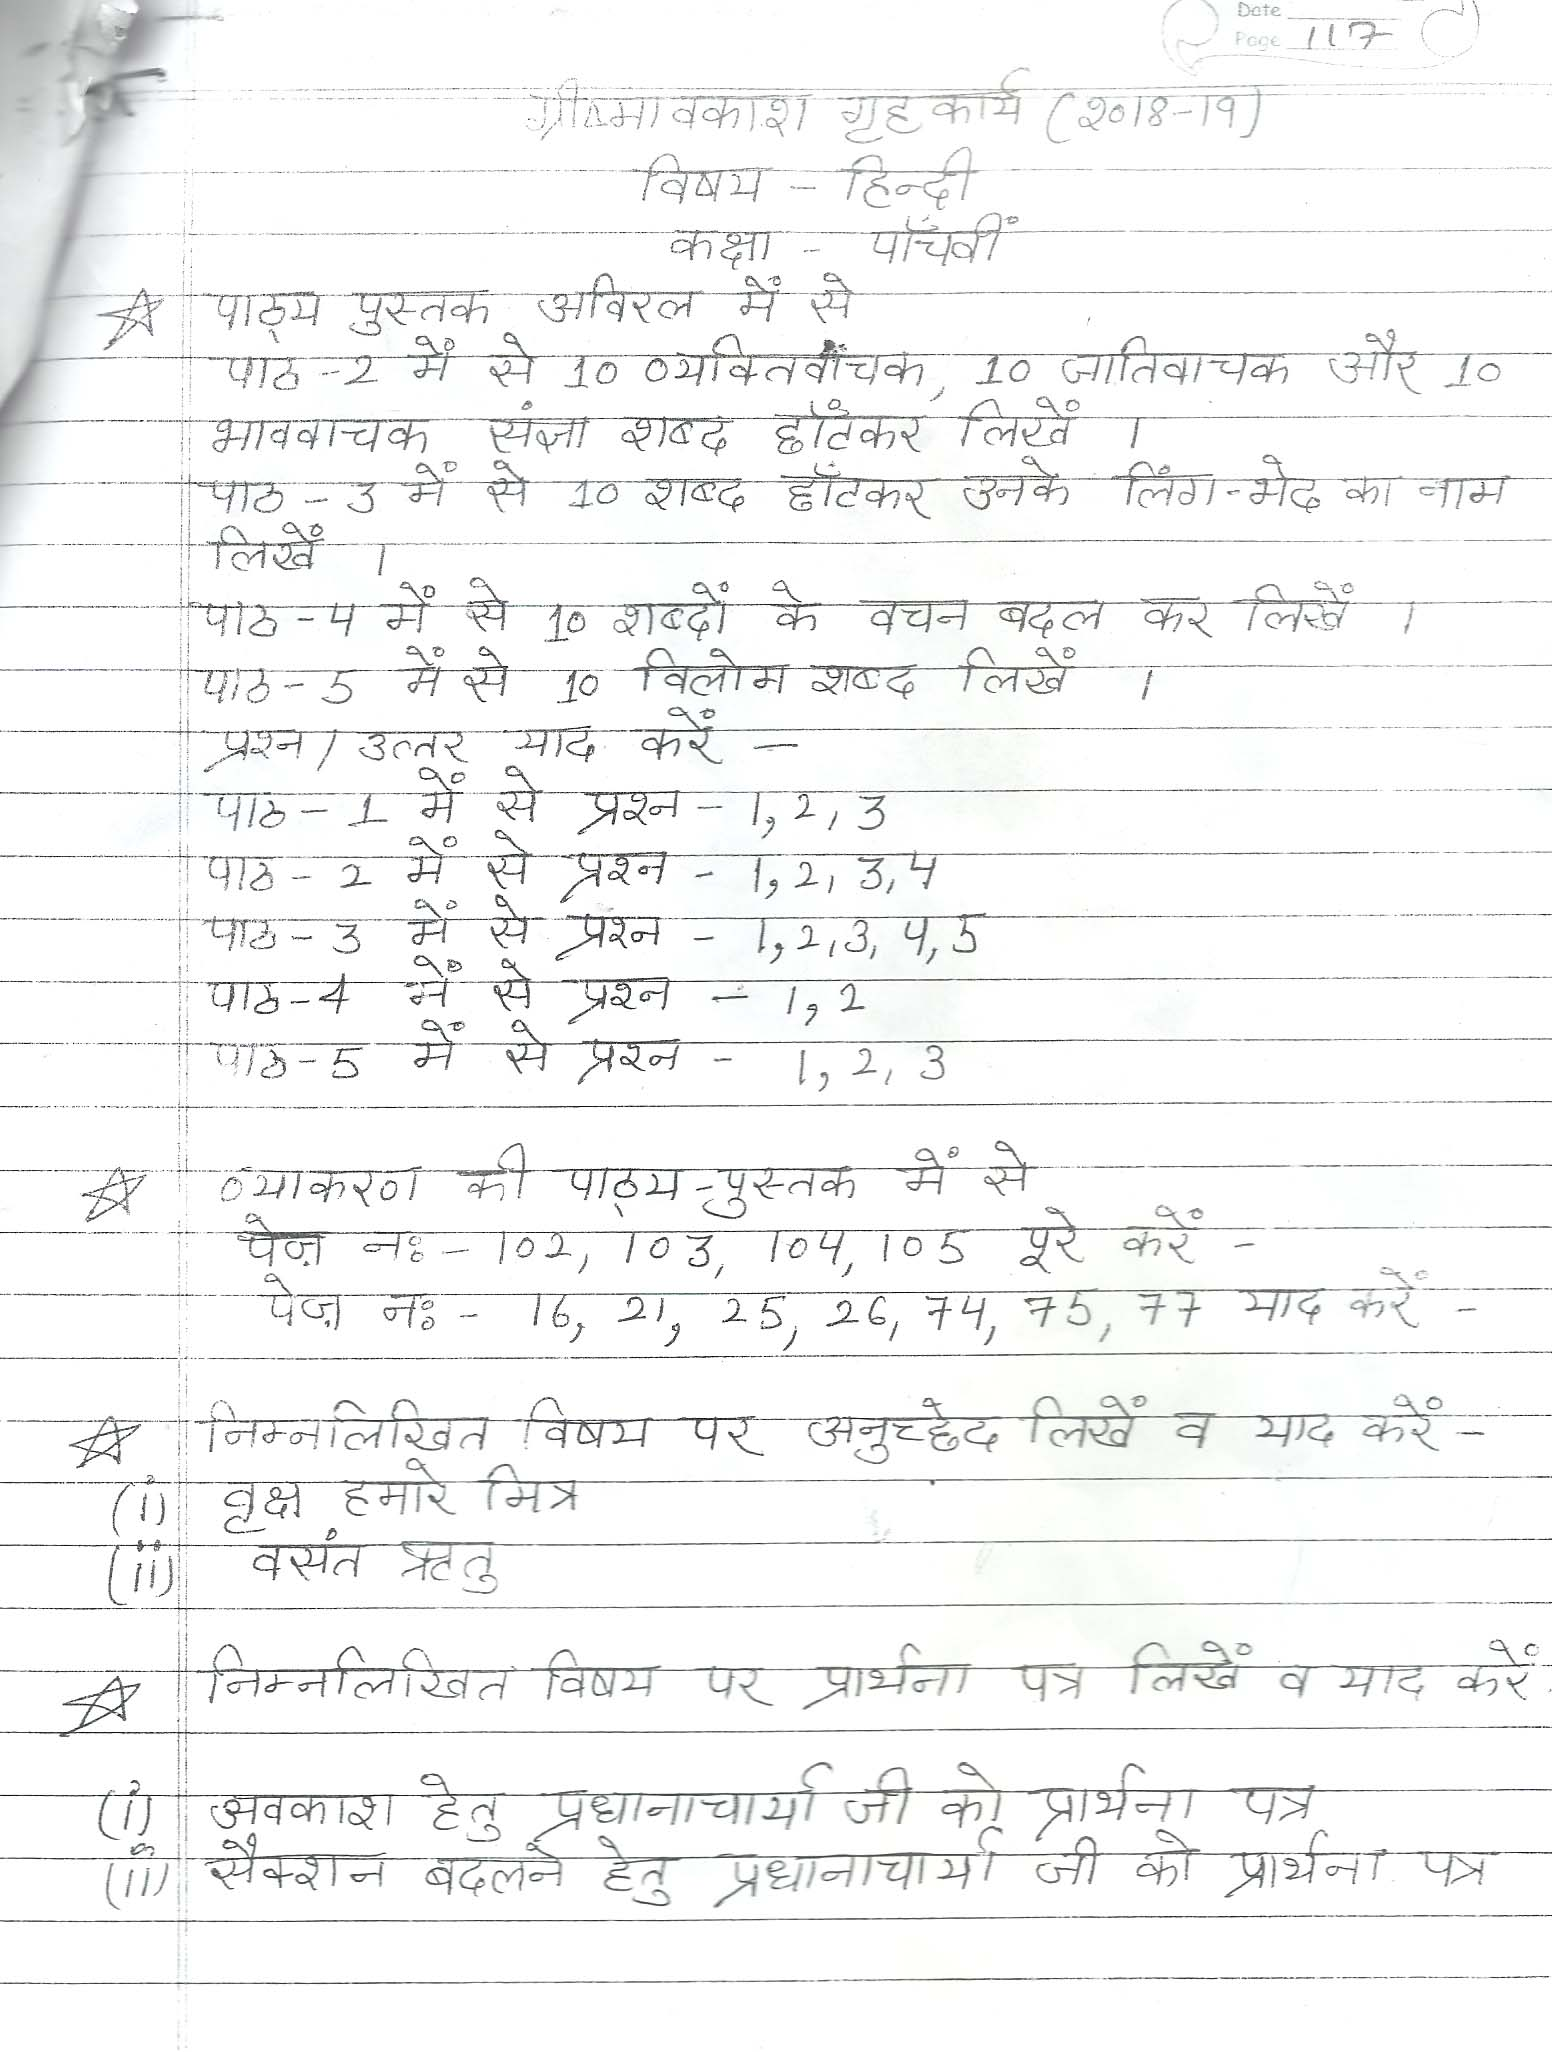 Date
Page 117
ग्रीष्मावकाश गृहकार्य (२०18-19)
विषय - हिन्दी
कक्षा - पाँचवीं
पाठ्य पुस्तक अविरल में से
पाठ - 2 में से 10 व्यक्तिवाचक, 10 जातिवाचक और 10
भाववाचक संज्ञा शब्द छाँटकर लिखें ।
पाठ - 3 में से 10 शब्द छाँटकर उनके लिंग-भेद का नाम
लिखें ।
पाठ - 4 में से 10 शब्दों के वचन बदल कर लिखें ।
पाठ - 5 में से 10 विलोम शब्द लिखें ।
प्रश्न / उत्तर याद करें -
पाठ - 1 में से प्रश्न - 1, 2, 3
पाठ - 2 में से प्रश्न - 1, 2, 3, 4
पाठ - 3 में से प्रश्न - 1, 2, 3, 4, 5
पाठ - 4 में से प्रश्न - 1, 2
पाठ - 5 में से प्रश्न - 1, 2, 3
व्याकरण की पाठ्य-पुस्तक में से
पेज़ नः - 102, 103, 104, 105 पूरे करें -
पेज़ नः - 16, 21, 25, 26, 74, 75, 77 याद करें -
निम्नलिखित विषय पर अनुच्छेद लिखें व याद करें -
(i) वृक्ष हमारे मित्र
(ii) वसंत ऋतु
निम्नलिखित विषय पर प्रार्थना पत्र लिखें व याद करें
(i) अवकाश हेतु प्रधानाचार्या जी को प्रार्थना पत्र
(ii) सैक्शन बदलने हेतु प्रधानाचार्या जी को प्रार्थना पत्र